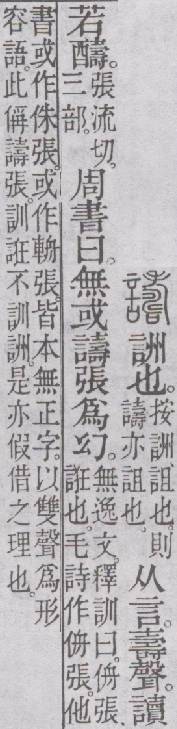 譸詶也。按詶詛也。則譸亦詛也。从言。壽聲。讀
若醻。張流切。三部。周書曰。無或譸張爲幻。無逸文。釋訓曰。侜張、誑也。毛詩作侜張。他
書或作侏張。或作輈張。皆本無正字。以雙聲爲形
容語。此偁譸張。訓誑不訓詶。是亦假借之理也。